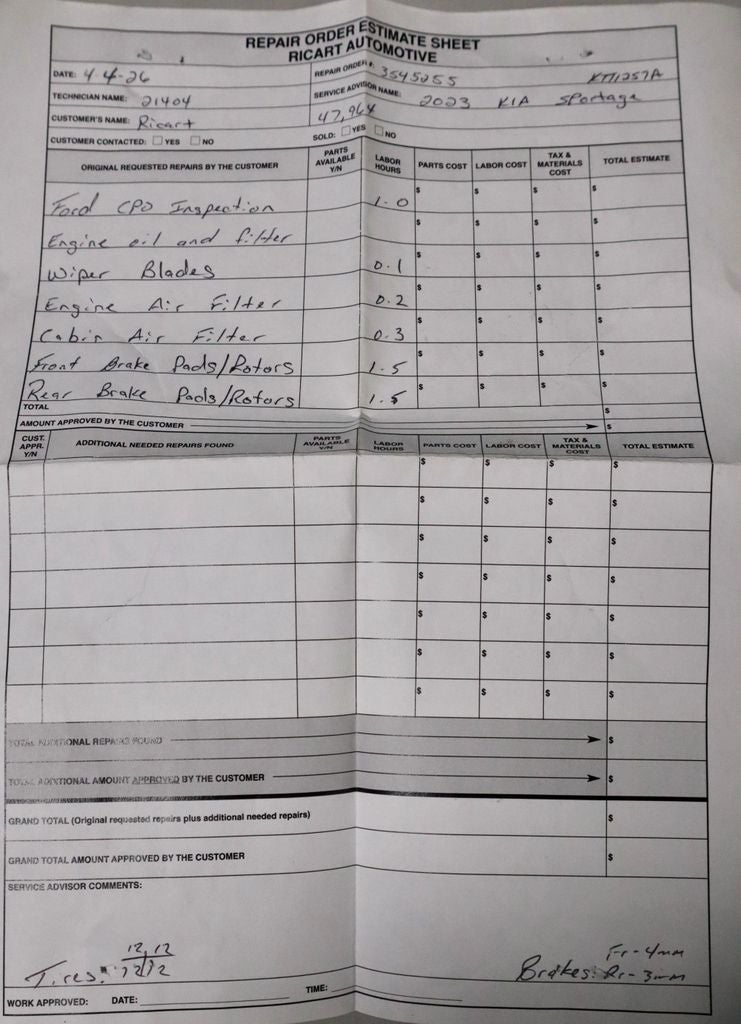 REPAIR ORDER ESTIMATE SHEET
RICART AUTOMOTIVE
DATE: 4-4-26 REPAIR ORDER #: 3545255 KM1257A
TECHNICIAN NAME: 21404 SERVICE ADVISOR NAME: 2023 KIA Sportage
CUSTOMER'S NAME: Ricart 47,964
CUSTOMER CONTACTED: YES NO SOLD: YES NO
ORIGINAL REQUESTED REPAIRS BY THE CUSTOMER PARTS AVAILABLE Y/N LABOR HOURS PARTS COST LABOR COST TAX & MATERIALS COST TOTAL ESTIMATE
Ford CPO Inspection 1.0 $ $ $ $
Engine oil and filter $ $ $ $
Wiper Blades 0.1 $ $ $ $
Engine Air Filter 0.2 $ $ $ $
Cabin Air Filter 0.3 $ $ $ $
Front Brake Pads/Rotors 1.5 $ $ $ $
Rear Brake Pads/Rotors 1.5 $ $ $ $
TOTAL $
AMOUNT APPROVED BY THE CUSTOMER $
CUST. APPR. Y/N ADDITIONAL NEEDED REPAIRS FOUND PARTS AVAILABLE Y/N LABOR HOURS PARTS COST LABOR COST TAX & MATERIALS COST TOTAL ESTIMATE
$ $ $ $
$ $ $ $
$ $ $ $
$ $ $ $
$ $ $ $
$ $ $ $
$ $ $ $
TOTAL ADDITIONAL REPAIRS FOUND $
TOTAL ADDITIONAL AMOUNT APPROVED BY THE CUSTOMER $
GRAND TOTAL (Original requested repairs plus additional needed repairs) $
GRAND TOTAL AMOUNT APPROVED BY THE CUSTOMER $
SERVICE ADVISOR COMMENTS:
12 12 Fr-4mm
Tires: 12 12 Brakes: Rr-3mm
WORK APPROVED: DATE: TIME: